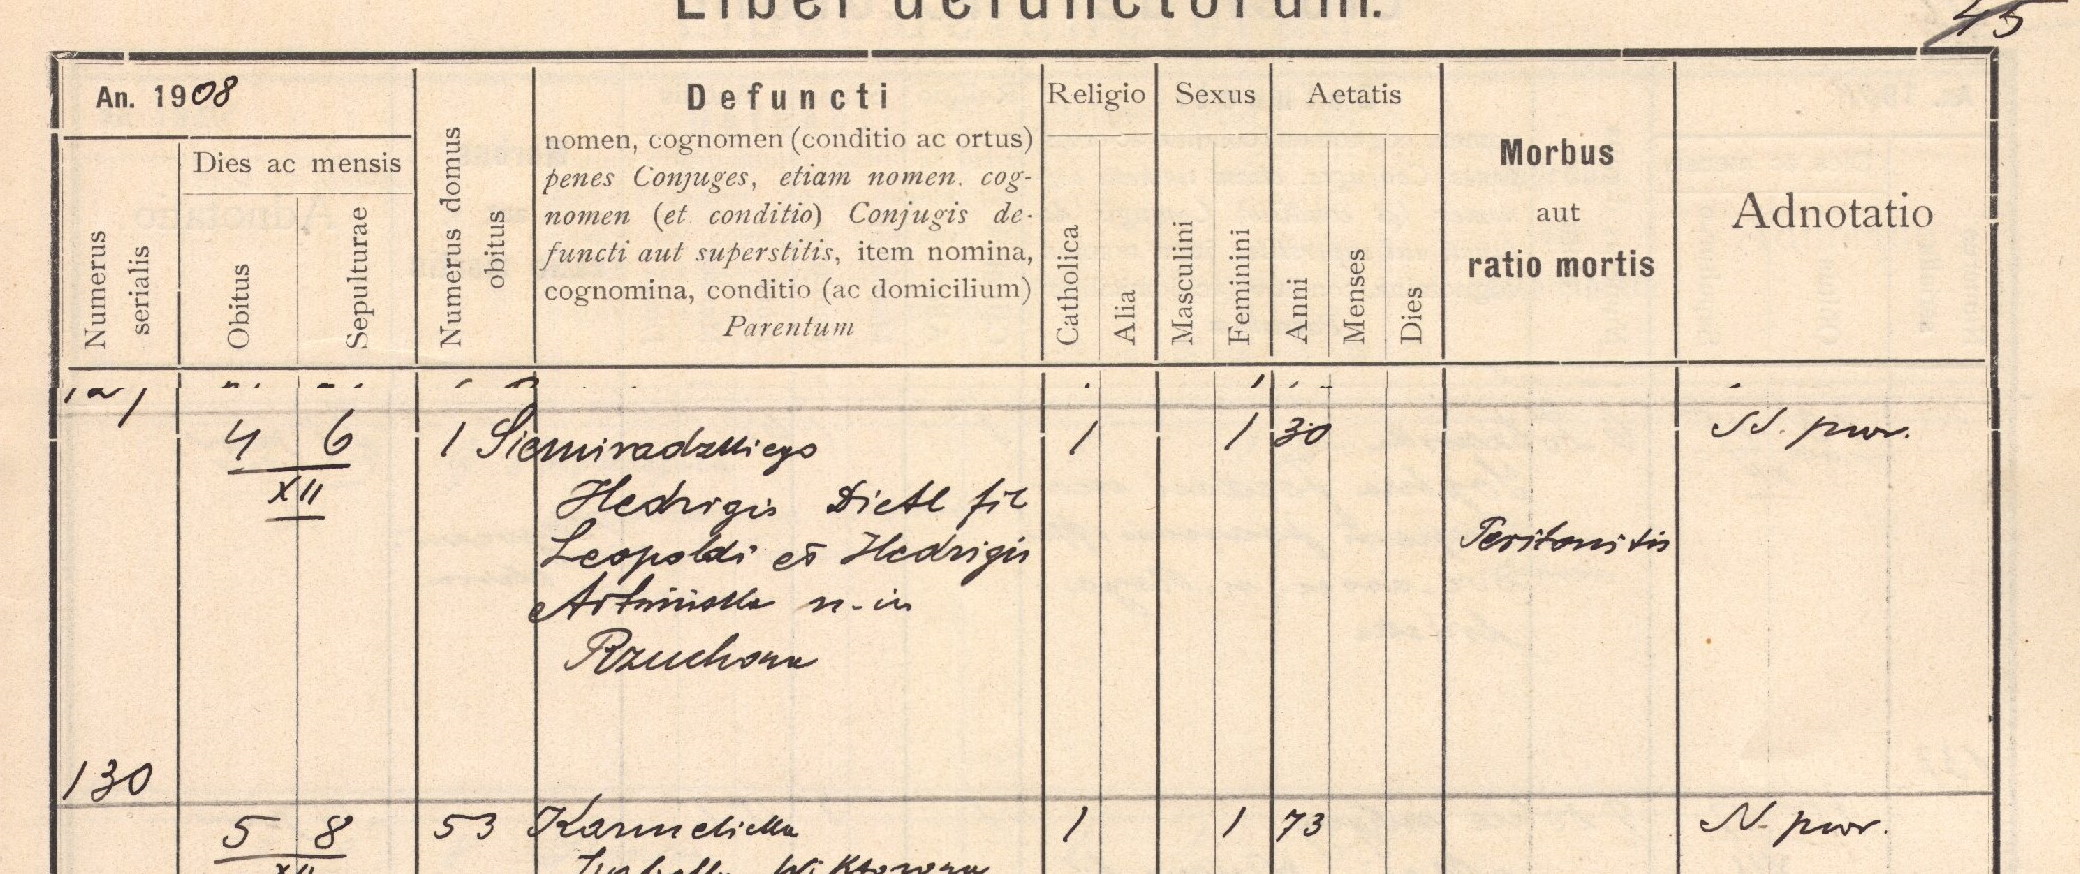 Liber defunctorum.
45
An. 1908
Numerus serialis
Dies ac mensis
Obitus
Sepulturae
Numerus domus obitus
Defuncti
nomen, cognomen (conditio ac ortus)
penes Conjuges, etiam nomen. cog-
nomen (et conditio) Conjugis de-
functi aut superstitis, item nomina,
cognomina, conditio (ac domicilium)
Parentum
Religio
Catholica
Alia
Sexus
Masculini
Feminini
Aetatis
Anni
Menses
Dies
Morbus
aut
ratio mortis
Adnotatio
4 6 1 Siemiradzkiego 1 1 30
XII
Hedvigis Dietl fil
Leopoldi et Hedvigis
n. in
Rzuchowa
Peritonitis
130
5 8 53 Karmelicka 1 1 73 N. pwr.
XII